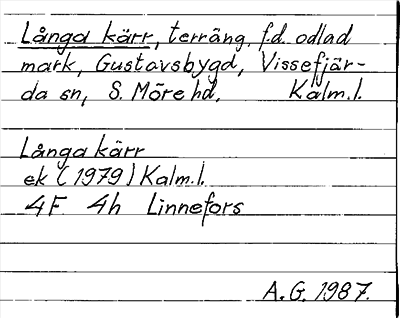 Långa kärr, terräng, f.d. odlad
mark, Gustavsbygd, Vissefjär-
da sn, S. Möre hd, Kalm.l.
Långa kärr
ek (1979) Kalm.l.
4F 4h Linnefors
A.G. 1987.